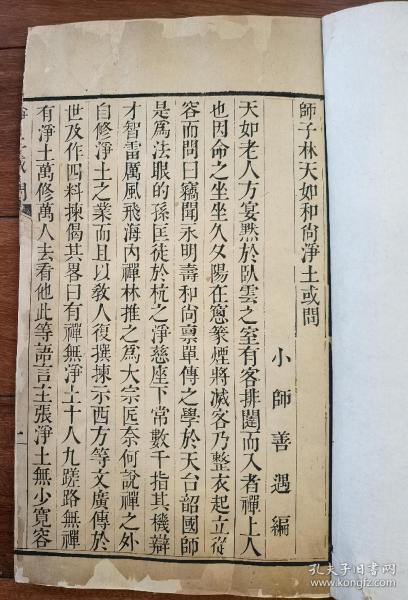 師子林天如和尚淨土或問
小師善遇編
天如老人方宴默於臥雲之室有客排闥而入者禪上人
也因命之坐坐久夕陽在窻篆煙將滅客乃整衣起立從
容而問曰竊聞永明壽和尚稟單傳之學於天台韶國師
是爲法眼的孫匡徒於杭之淨慈座下常數千指其機辯
才智雷厲風飛海內禪林推之爲大宗匠奈何說禪之外
自修淨土之業而且以敎人復撰揀示西方等文廣傳於
世及作四料揀偈其畧曰有禪無淨土十人九蹉路無禪
有淨土萬修萬人去看他此等語言主張淨土無少寬容
淨土或問
一
孔夫子旧书网
www.kongfz.com